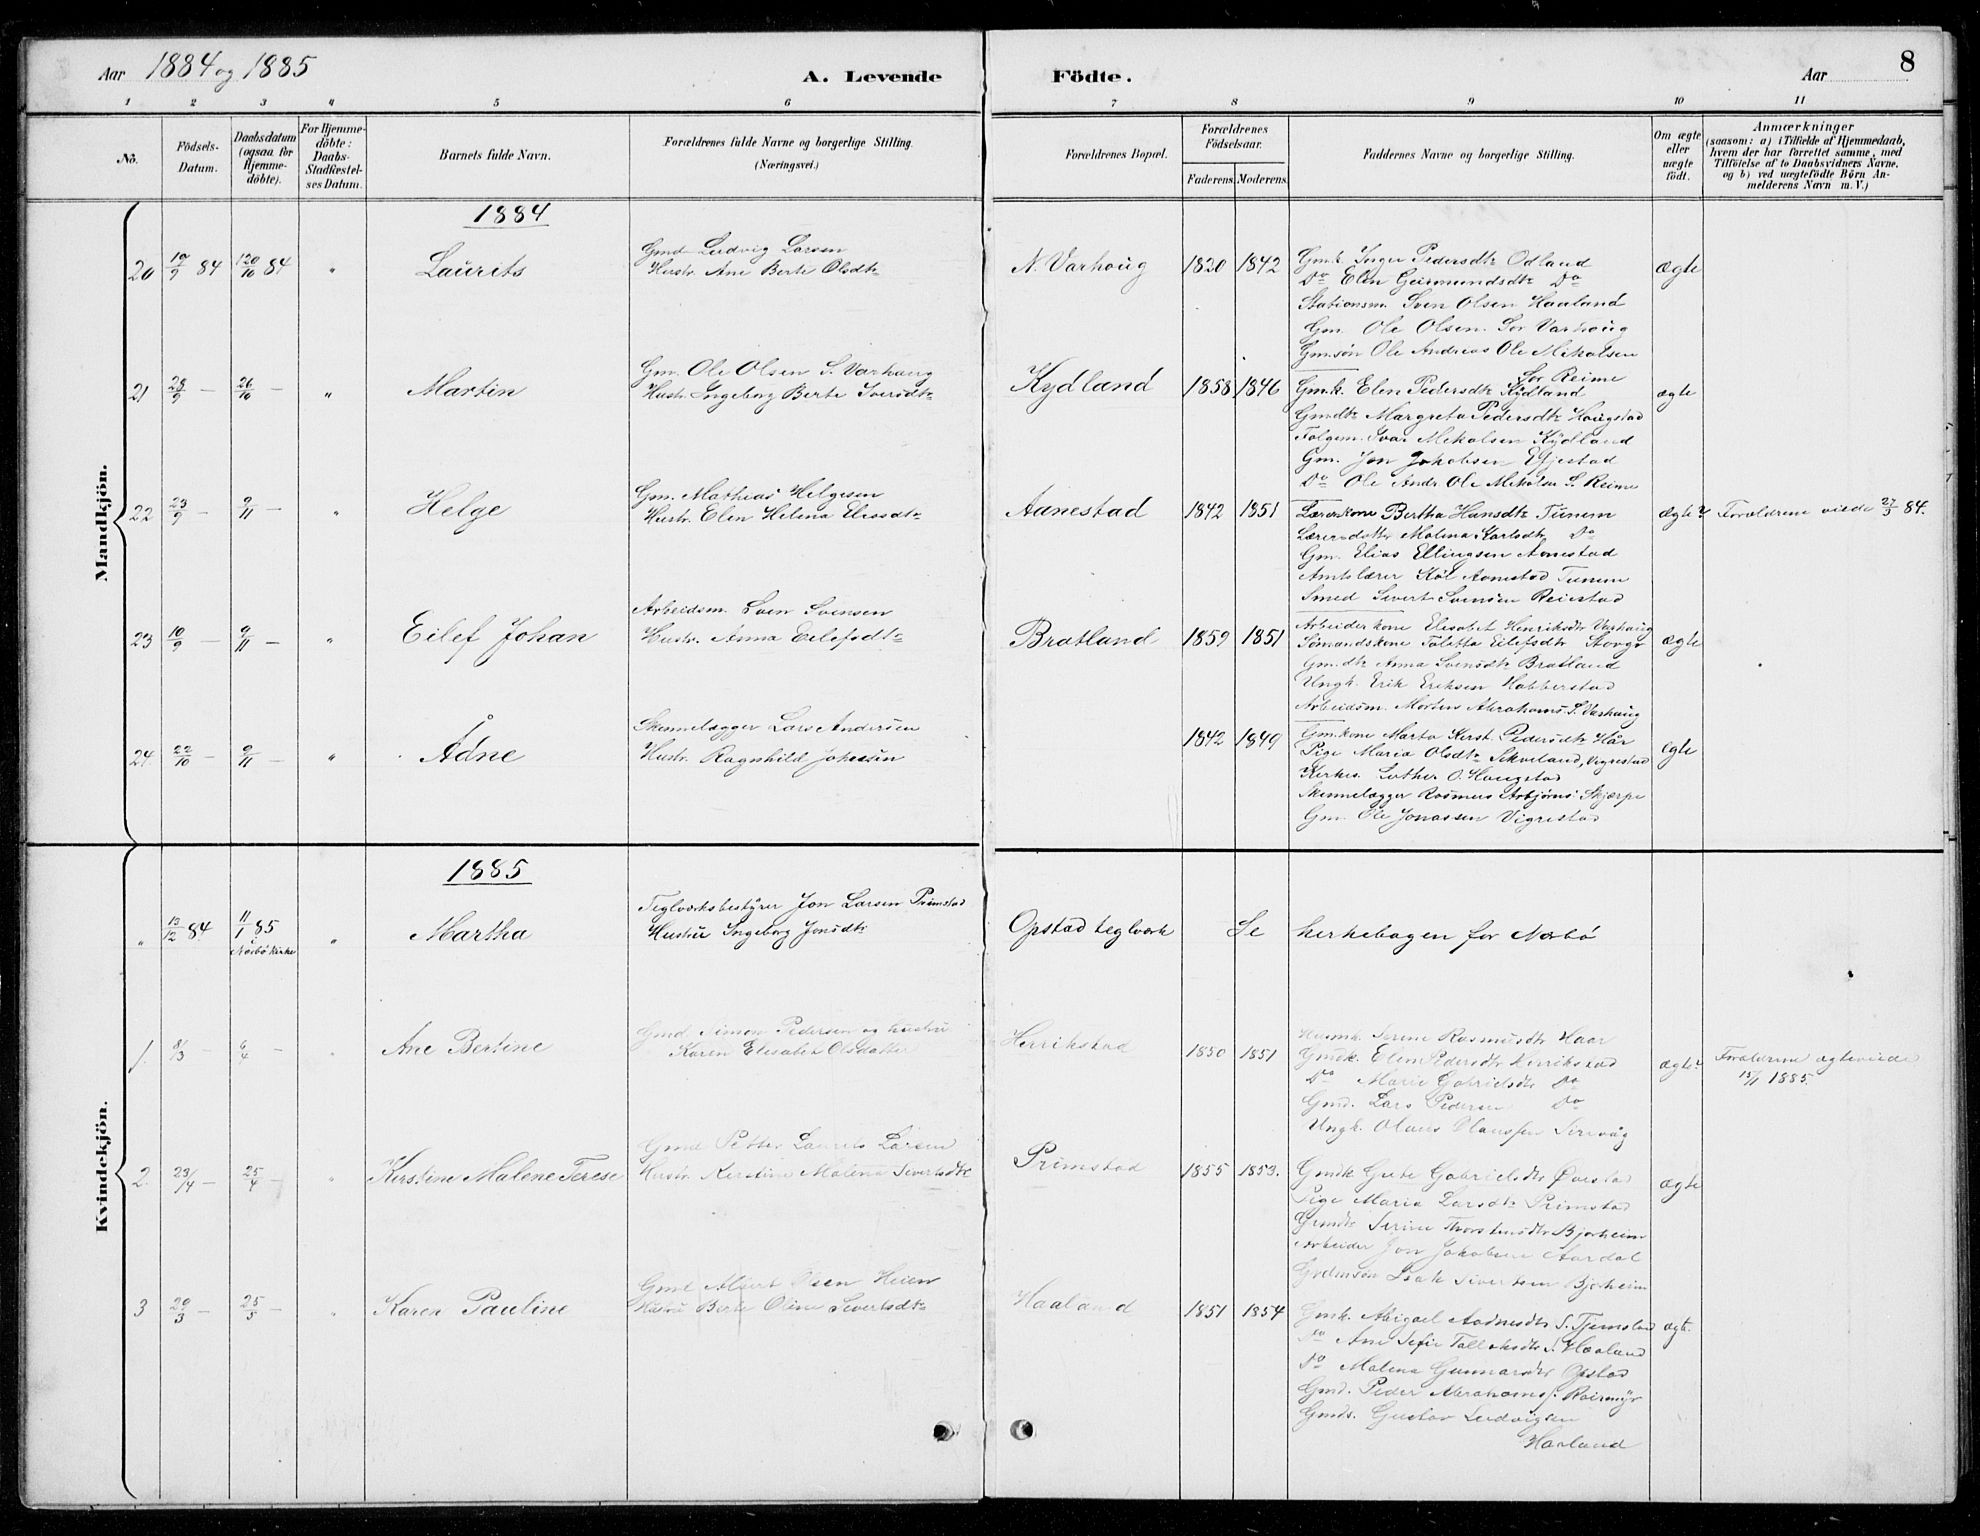 Aar 1884 og 1885
A. Levende
Födte.
Aar
8
1 2 3 4 5 6 7 8 9 10 11
No.
Födsels-
Datum.
Daabsdatum
(ogsaa for
Hjemme-
döbte).
For Hjemme-
döbte:
Daabs-
Stadfæstel-
ses Datum.
Barnets fulde Navn.
Forældrenes fulde Navne og borgerlige Stilling.
(Næringsvei.)
Forældrenes Bopæl.
Forældrenes
Födselsaar.
Faderens. Moderens.
Faddernes Navne og borgerlige Stilling.
Om ægte
eller
uægte
födt.
Anmærkninger
(saasom: a) i Tilfælde af Hjemmedaab,
hvem der har forrettet samme, med
Tilföielse af to Daabsvidners Navne,
og b) ved uægtefödte Börn An-
melderens Navn m. V.)
Mandkjön.
1884
20 84 84 " Laurits
Gmd Ludvig Larsen
Hustr. Ane Berte Olsdtr
N. Varhoug 1820 1842
Gmk Inger Pedersdtr Odland
Do Elen Geirmundsdtr Do
Stationsm. Sven Olsen Haaland
Gm. Ole Olsen Sör Varhoug
Gm.sön Ole Andreas Ole Mikalsen
Sör Reime
ægte
21 28/9 — 26/10 — " Martin
Gm. Ole Olsen S. Varhaug
Hustr. Ingeborg Berte Iversdtr
Kydland 1858 1846
Gm.k. Elen Pedersdtr Kydland
Gmdtr Margreta Pedersdtr Hougstad
Folgem. Ivar Mikalsen Kydland
Gm. Jon Jakobsen
Do Ole Andr. Ole Mikalsn S. Reime
ægte
22 23/9 — 9/11 — " Helge
Gm. Mathias Helgesen
Hustr. Elen Helena
Aanestad 1842 1851
Lærerkone Bertha Hansdtr Tunem
Lærersdatter Malena Karlsdtr Do
Gm. Elias Ellingsen Aanestad
Amtslærer Aanestad Tunem
Smed Sivert Svensen Reiestad
ægte Forældrene viede 27/3 84.
23 10/9 — 9/11 — " Eilef Johan
Arbeidsm. Sven Svensen
Hustr. Anna Eilefsdtr
Bratland 1859 1851
Arbeiderkone Elisabet Henriksdtr Varhaug
Sömandskone Taletta Eilefsdtr
Gm.dtr Anna Svensdtr Bratland
Ungk. Erik Eriksen Habberstad
Arbeidsm. Morten Abrahams. S. Varhaug
ægte
24 22/10 — 9/11 — " Ådne
Skinnelægger Lars Andersen
Hustr. Ragnhild
1842 1849
Gm.kone Marta Kirst. Pedersdtr Hår
Pige Maria Olsdtr Vigrestad
Kirkes. Luther O. Hougstad
Skinnelægger Rasmus Asbjørns. Skjærpe
Gm. Ole Jonassen Vigrestad
ægte
Kvindekjön.
1885
" 13/12 84 11/1 85 " Martha
Nærbö Kirke
Teglværksbestyrer Jon Larsen Primstad
Hustru Ingeborg Jonsdtr
Opstad teglværk Se kirkebogen for Nærbö
1. 8/3 — 6/4 — " Ane Bertine
Gmd Simon Pedersen og hustru
Karen Elisabet Olsdatter
Herrikstad 1850 1851
Husmk. Serine Rasmusdtr Haar
Gmdk. Elen Pedersdtr Herrikstad
Do Marie Gabrielsdtr Do
Gmd. Lars Pedersen Do
Ungk. Olaus Olaussen Sirevåg
ægte Forældrene ægteviede
15/1 1885.
2. 23/14 — 25/4 — " Kirstine Malene Terese
Gmd Petter Laurits Larsen
Hustr. Kirstine Malena Sivertsdtr
Primstad 1855 1853.
Gmdk Gurte Gabrielsdtr
Pige Maria Larsdtr Primstad
Gmdtr Serine Thorstensdtr Bjorheim
Arbeider Jon Jakobsen Aardal
Isak Sivertsen Bjorheim
ægte
3 29/3 — 25/5 — " Karen Pauline
Gmd Albert Olsen Heien
Hustru Berte Oline Sivertsdtr
Haaland 1851 1854
Gmk. Abigael Aadnesdtr S. Tjemsland
Do Ane Sofie Haaland
Do Malena Gunnarsdtr Opstad
Gmd. Peder Abrahams.
Gmds. Gustav Ludvigsen
Haaland
ægte